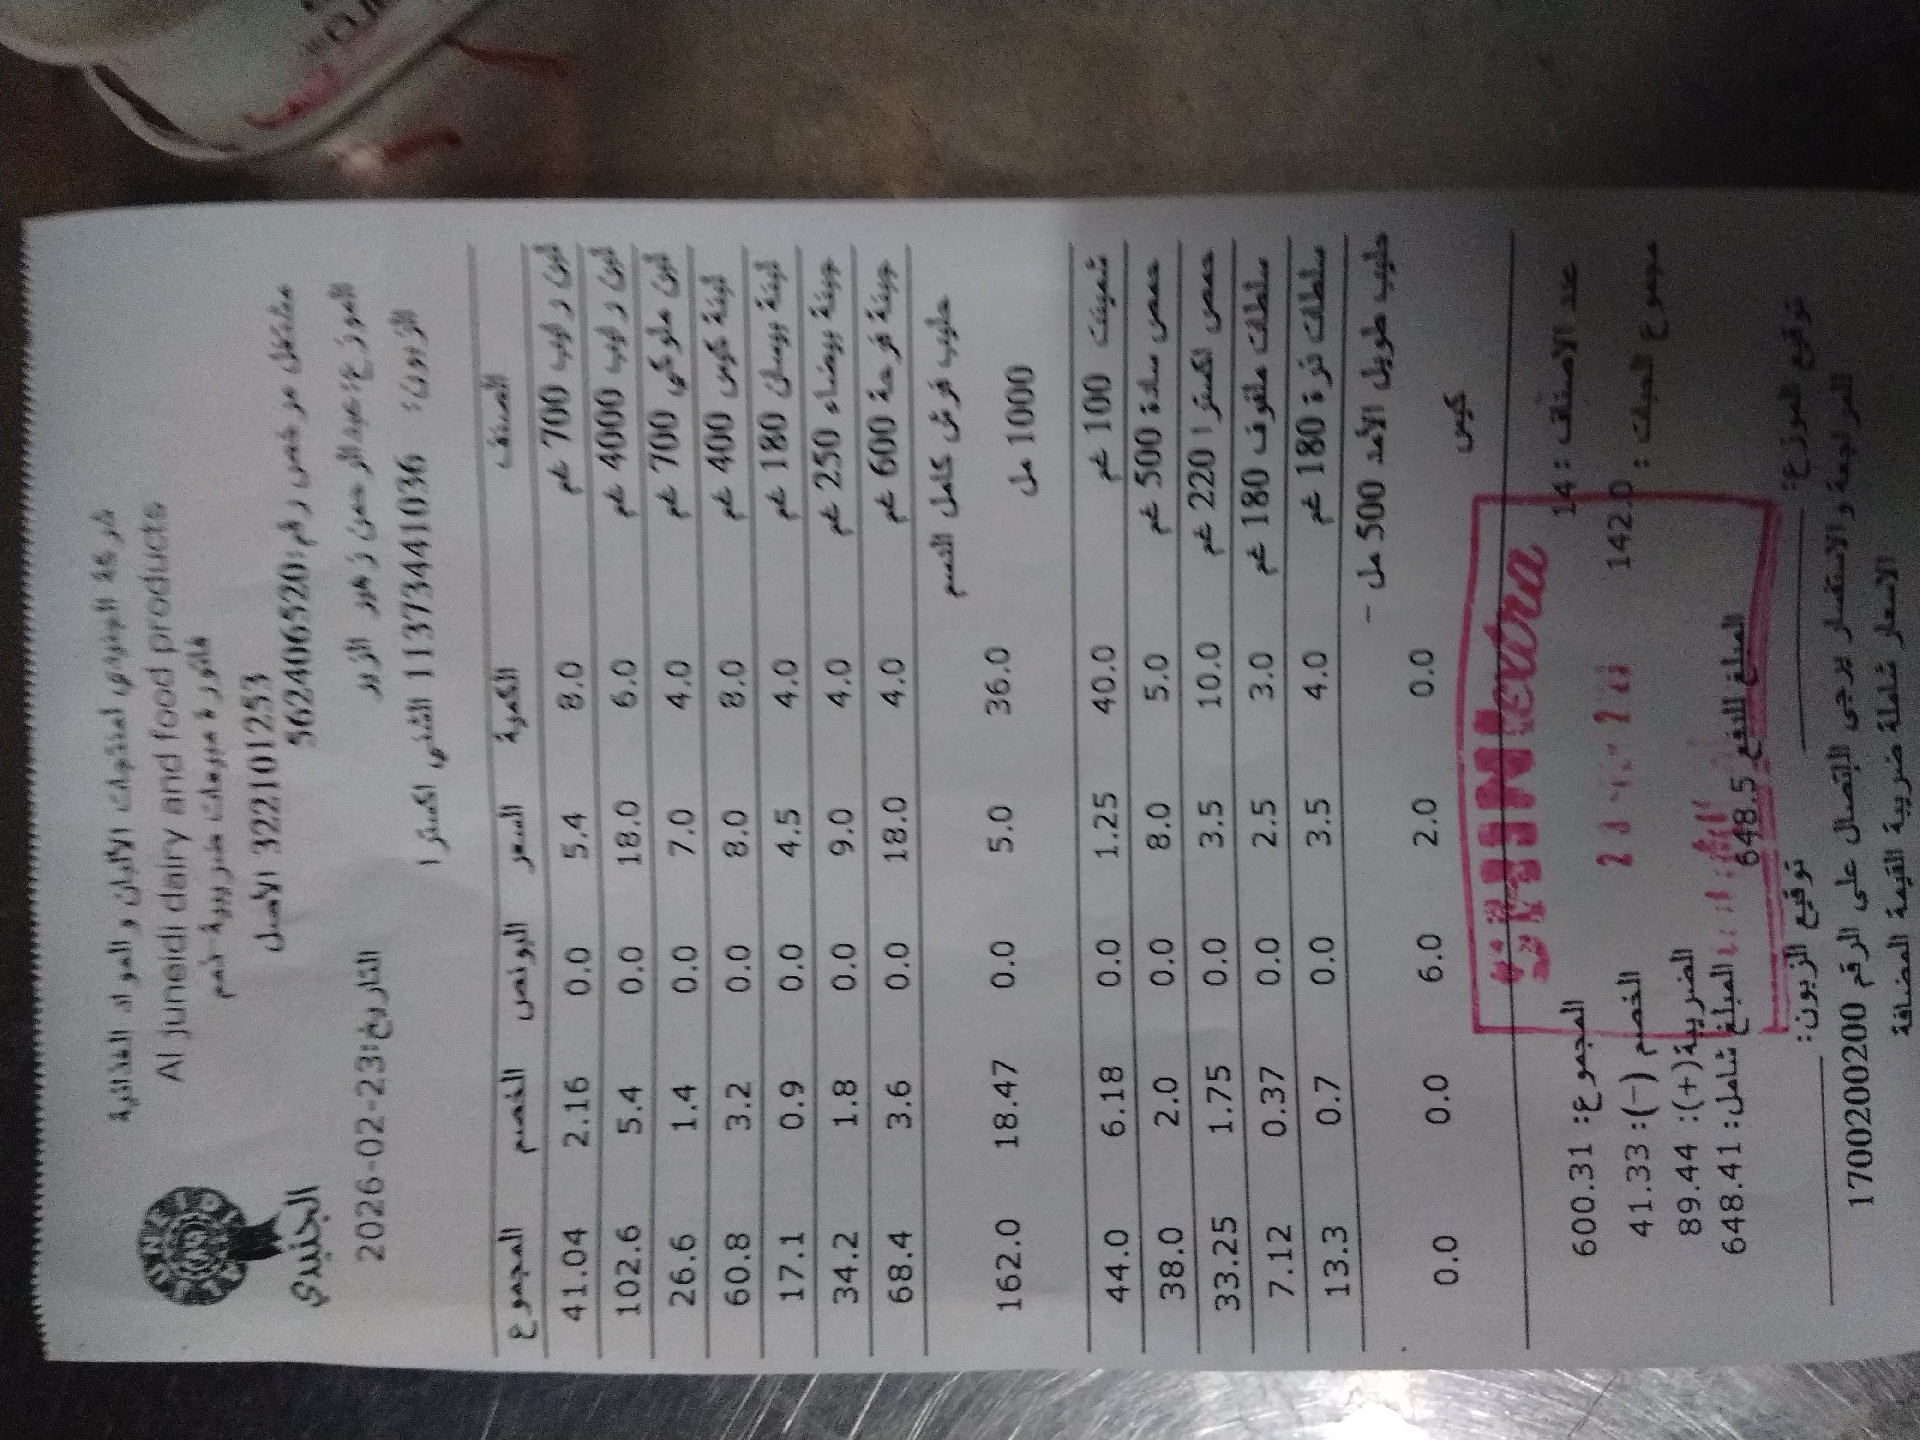 شركة الجنيدي لمنتجات الألبان و المواد الغذائية
Al juneidi dairy and food products
فاتورة مبيعات ضريبية
3221101253 الأصل
مشتغل مرخص رقم: 562406520
الجنيدي
الموزع: عبدالرحمن زهور الزير
التاريخ: 2026-02-23
الزبون: 1137344 1036 الشني اكسترا
الصنف الكمية السعر البونص الخصم المجموع
لبن رايب 700 غم 8.0 5.4 0.0 2.16 41.04
لبن رايب 4000 غم 6.0 18.0 0.0 5.4 102.6
لبن ملوكي 700 غم 4.0 7.0 0.0 1.4 26.6
لبنة كوس 400 غم 8.0 8.0 0.0 3.2 60.8
لبنة 180 غم 4.0 4.5 0.0 0.9 17.1
جبنة بيضاء 250 غم 4.0 9.0 0.0 1.8 34.2
جبنة فرحة 600 غم 4.0 18.0 0.0 3.6 68.4
حليب فرش كامل الدسم
1000 مل 36.0 5.0 0.0 18.47 162.0
شمينت 100 غم 40.0 1.25 0.0 6.18 44.0
حمص سادة 500 غم 5.0 8.0 0.0 2.0 38.0
حمص اكسترا 220 غم 10.0 3.5 0.0 1.75 33.25
سلطات ملفوف 180 غم 3.0 2.5 0.0 0.37 7.12
سلطات ذرة 180 غم 4.0 3.5 0.0 0.7 13.3
حليب طويل الأمد 500 مل -
كيس 0.0 2.0 6.0 0.0 0.0
extra
عدد الاصناف: 14
المجموع: 600.31
مجموع الحبات: 142.0
الخصم (-): 41.33
الضريبة(+): 89.44
المبلغ شامل: 648.41
المبلغ للدفع 648.5
توقيع الموزع:
توقيع الزبون:
للمراجعة والاستفسار يرجى الاتصال على الرقم 1700200200
الاسعار شاملة ضريبة القيمة المضافة